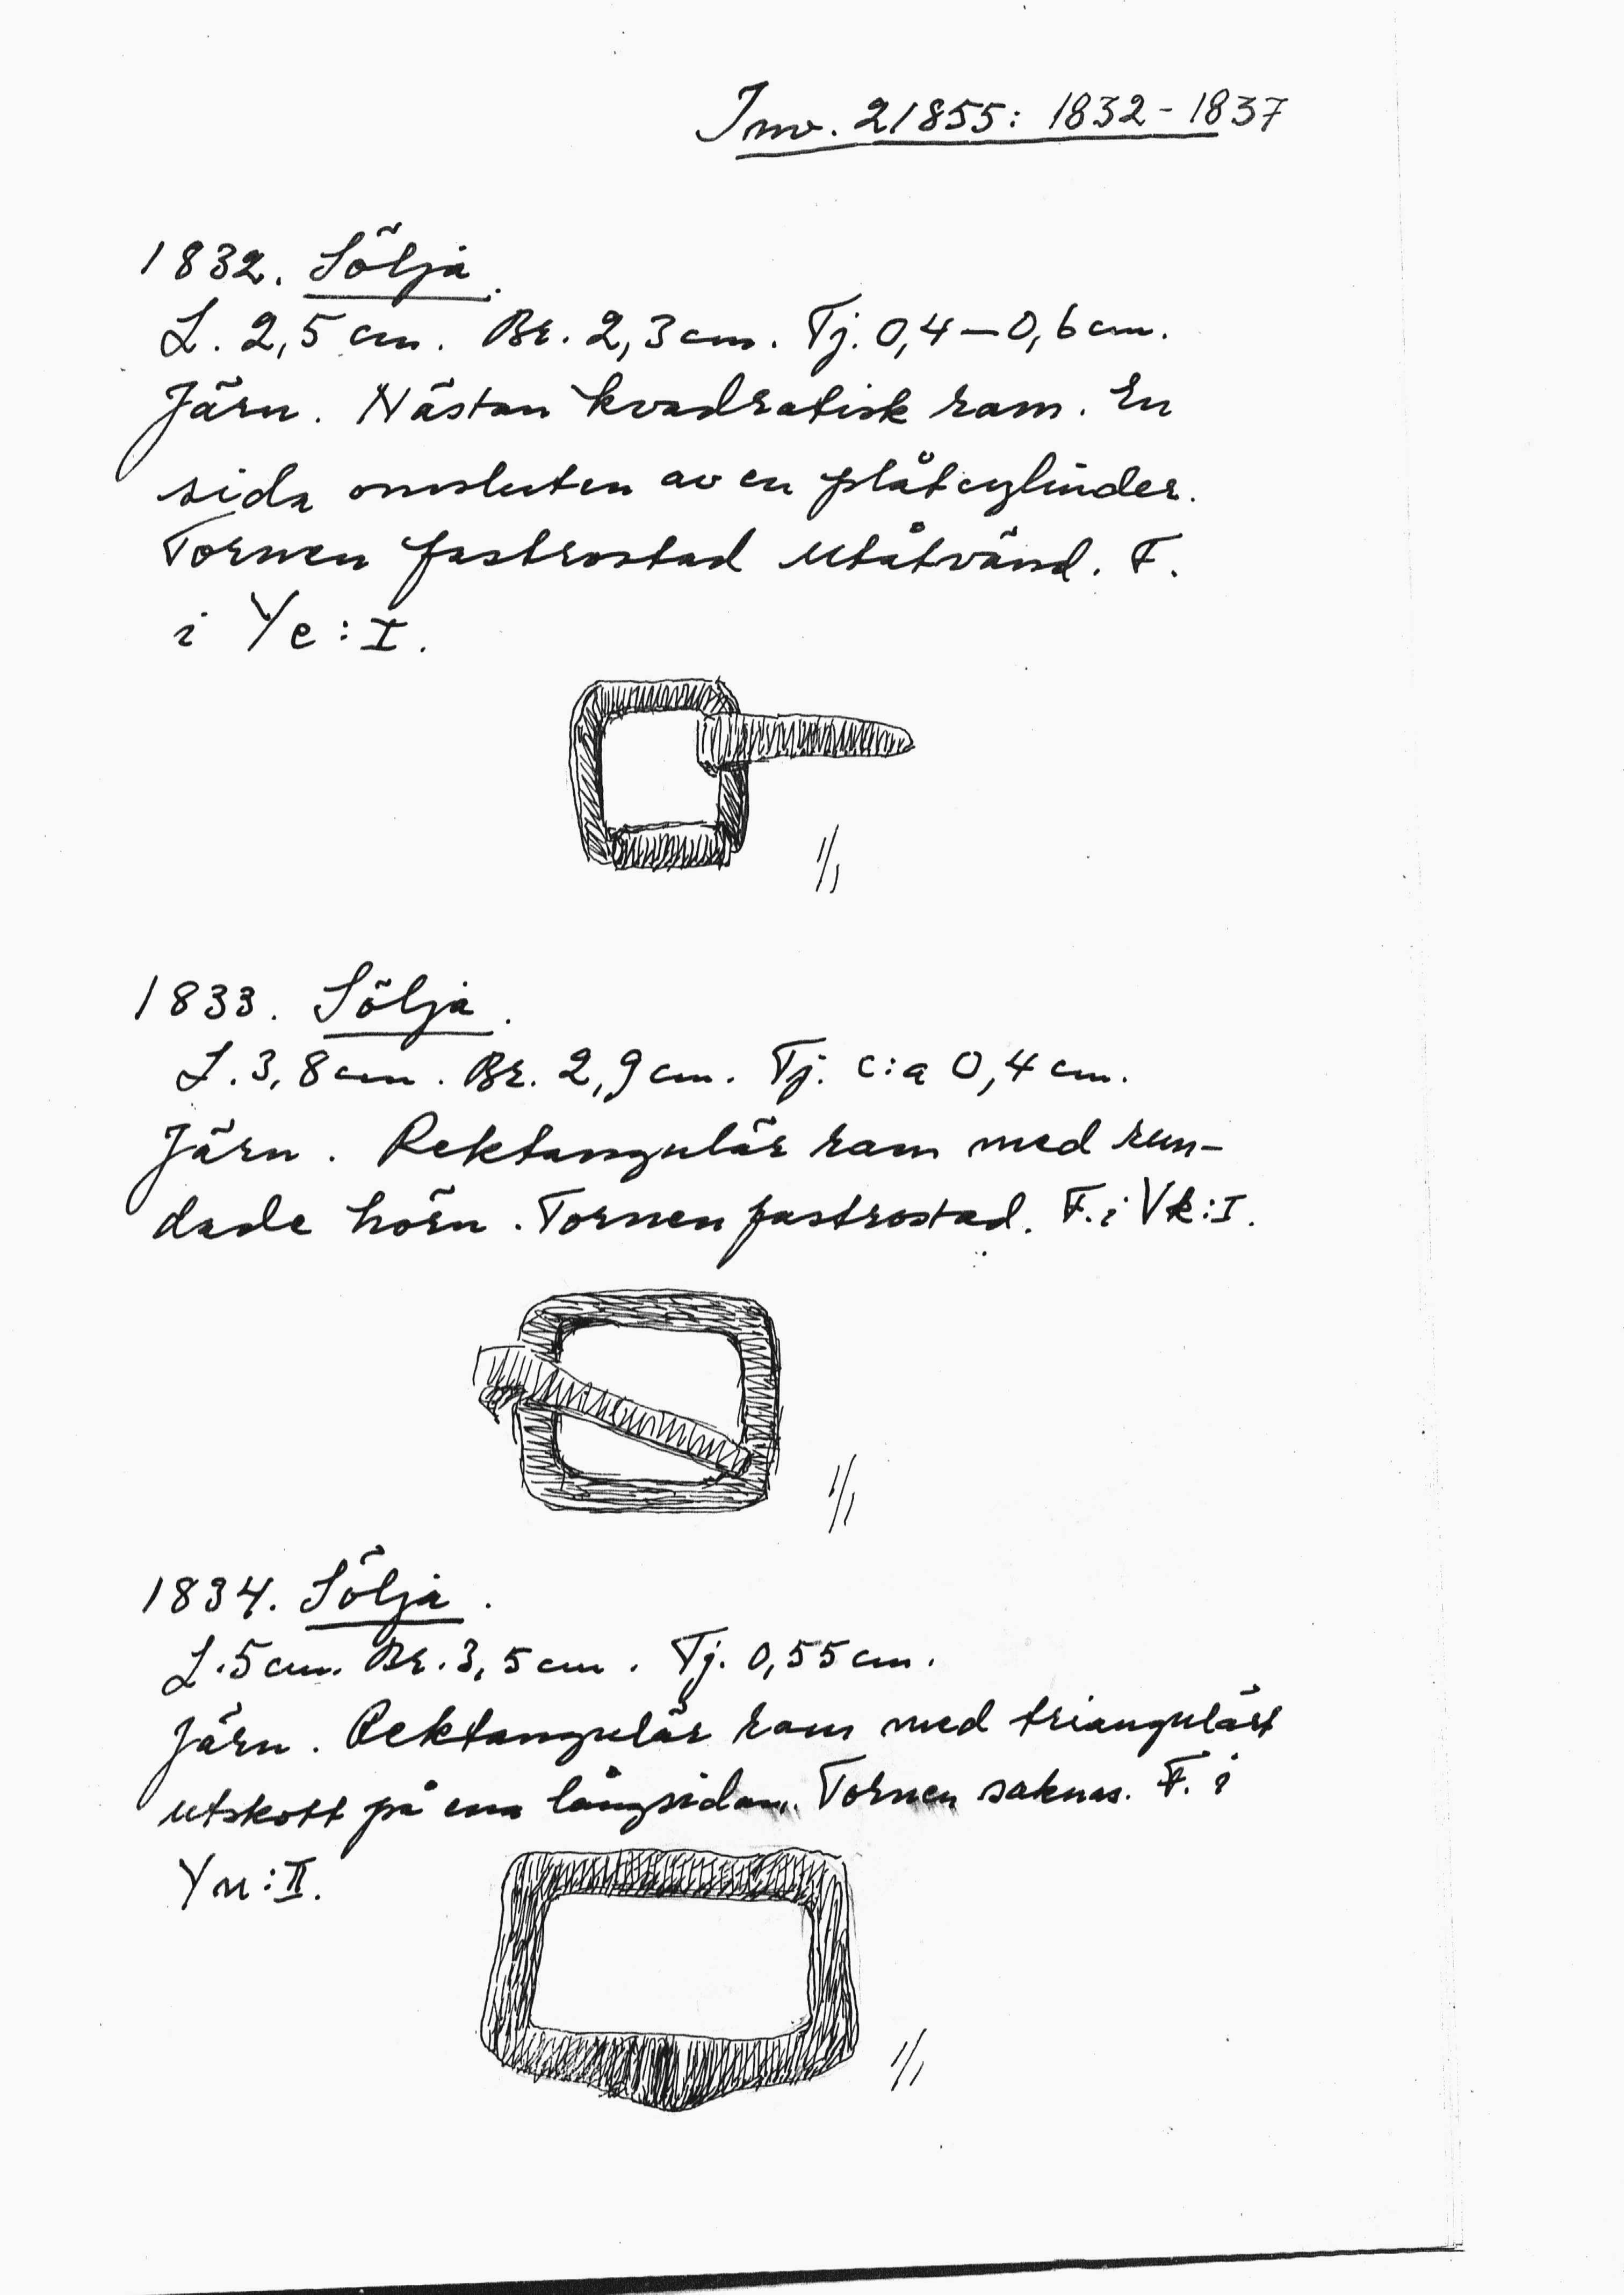 Inv. 21855: 1832-1837
1832. Sölja.
L. 2,5 cm. Br. 2,3 cm. Tj. 0,4-0,6 cm.
Järn. Nästan kvadratisk ram. En
sida omsluten av en plåtcylinder.
Tornen fastrostad utåtvänd. F.
i Ye:I.
1/1
1833. Sölja.
L. 3,8 cm. Br. 2,9 cm. Tj. c:a 0,4 cm.
Järn. Rektangulär ram med run-
dade hörn. Tornen fastrostad. F. i Vk:I.
1/1
1834. Sölja.
L. 5 cm. Br. 3,5 cm. Tj. 0,55 cm.
Järn. Rektangulär ram med triangulärt
utskott på ena långsidan. Tornen saknas. F. i
Yn:II.
1/1